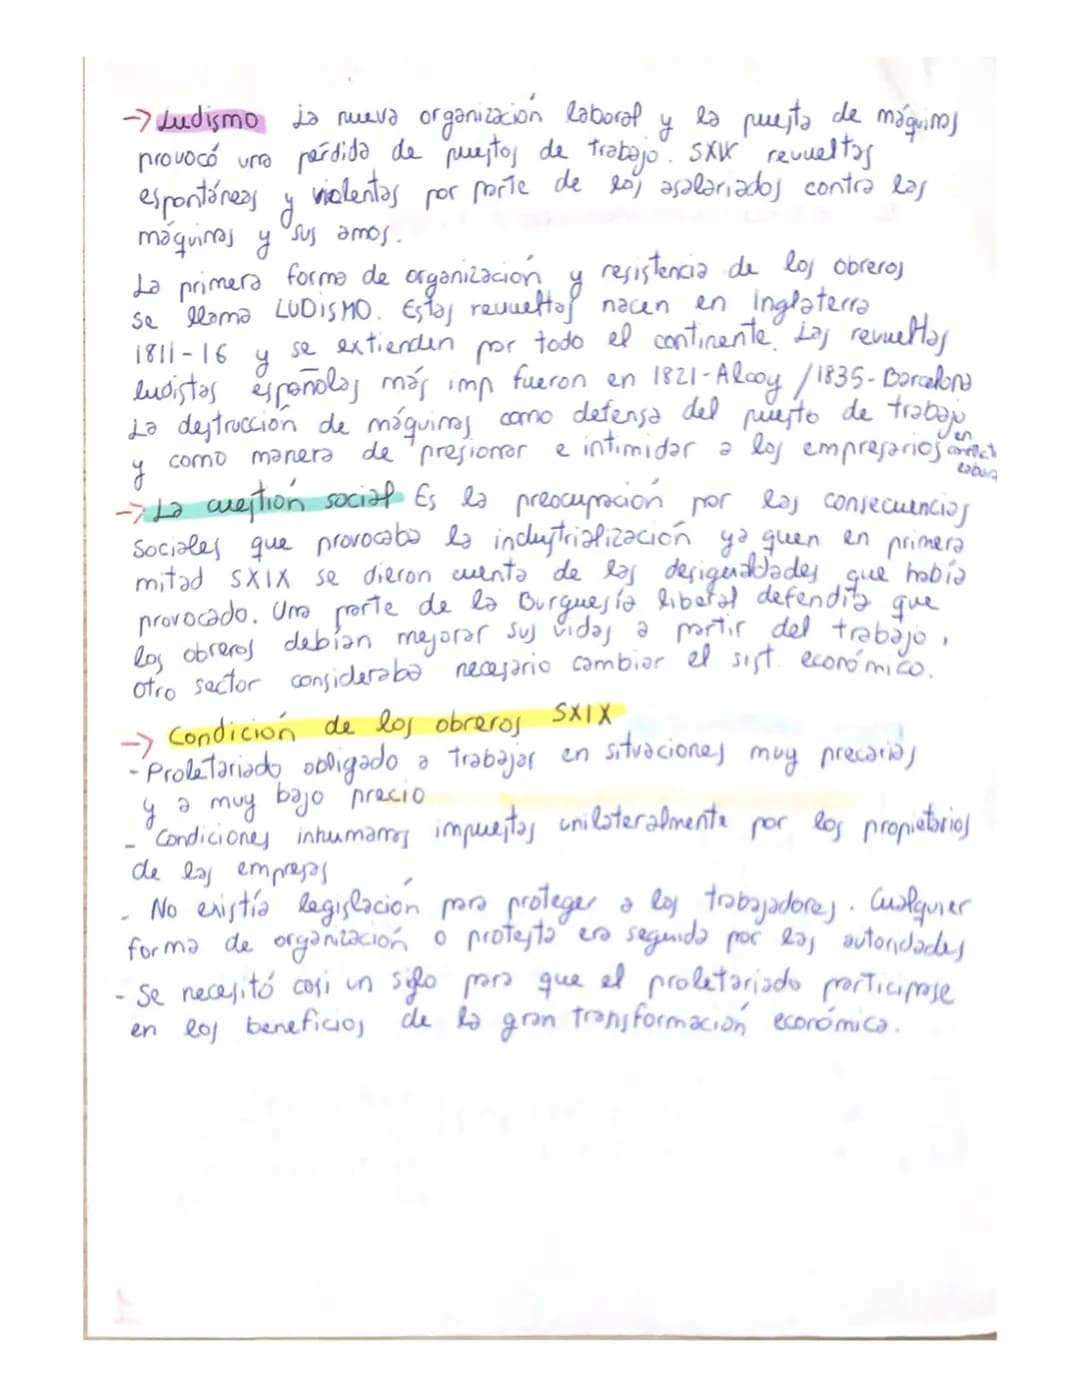 → Ludismo La nueva organización laboral y la puesta de máquinas
provocó una pérdida de puestos de trabajo. SXIX revueltas
espontáneas y violentas por parte de los asalariados contra las
máquinas y sus amos.
La primera forma de organización y resistencia de los obreros
se llama LUDISMO. Estas revueltas nacen en Inglaterra
1811-16 y se extienden por todo el continente. Las revueltas
ludistas españolas más imp fueron en 1821-Alcoy / 1835-Barcelona
La destrucción de máquinas como defensa del puesto de trabajo
y como manera de presionar e intimidar a los empresarios en
→ La cuestión social Es la preocupación por las consecuencias
sociales que provocaba la industrialización ya quen en primera
mitad SXIX se dieron cuenta de las desigualdades que había
provocado. Una parte de la Burguesía liberal defendía que
los obreros debían mejorar sus vidas a partir del trabajo,
otro sector consideraba necesario cambiar el sist. económico.
→ Condición de los obreros SXIX
- Proletariado obligado a trabajar en situaciones muy precarias
y a muy bajo precio
- Condiciones inhumanas impuestas unilateralmente por los propietarios
de las empresas
- No existía legislación para proteger a los trabajadores. Cualquier
forma de organización o protesta era seguida por las autoridades
- Se necesitó casi un siglo para que el proletariado participase
en los beneficios de la gran transformación económica.